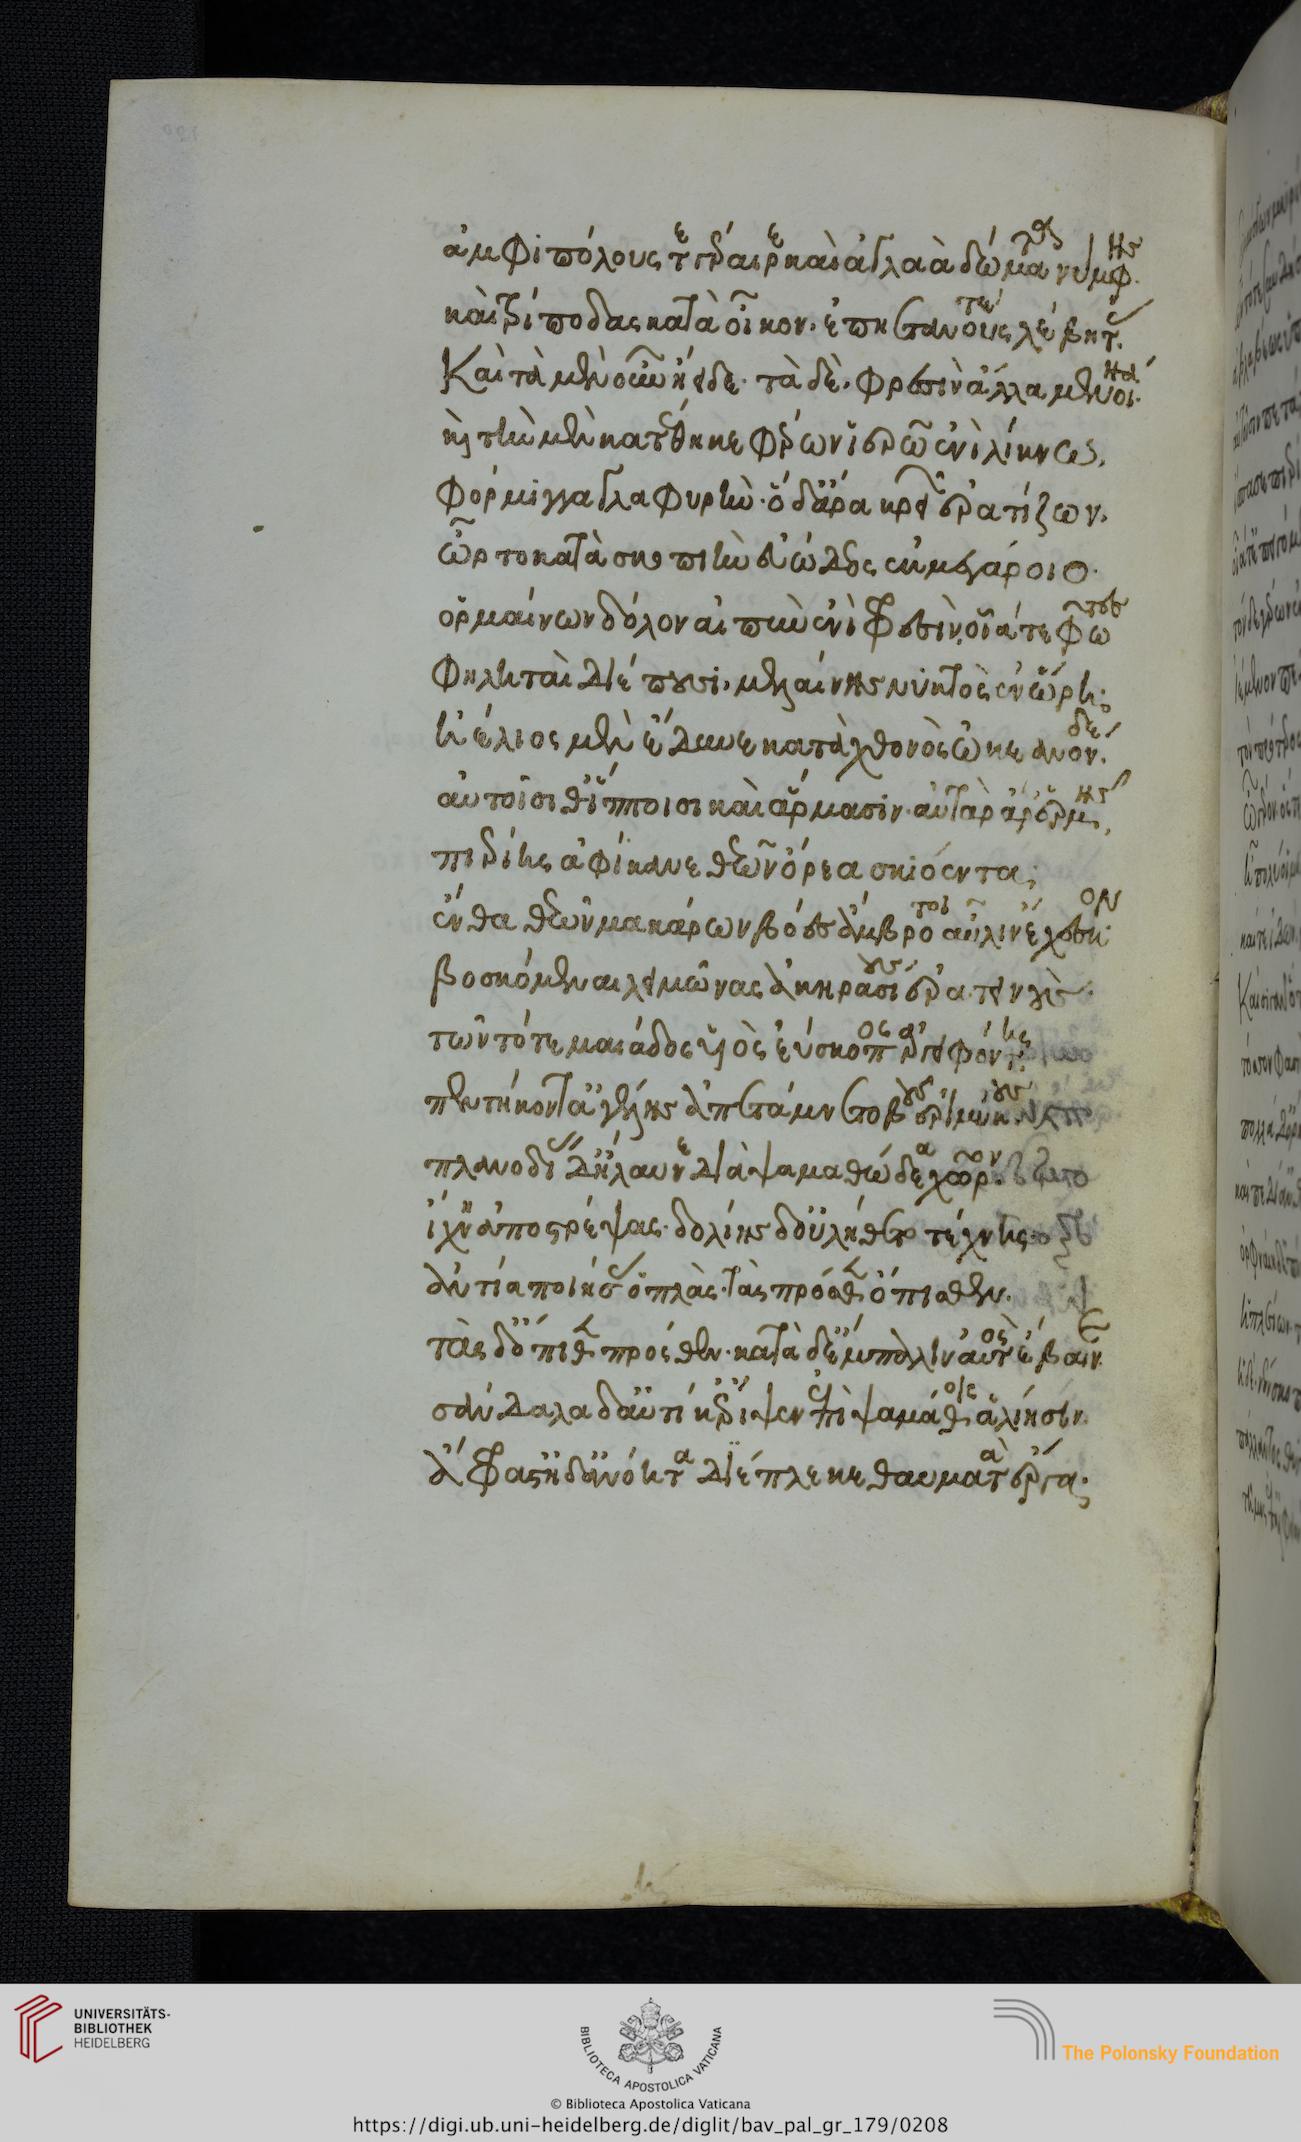 ἀμφιπόλους τε γέραιρε καὶ ἀγλαὰ δώματα νύμφης.
καὶ τρίποδας κατὰ οἶκον. ἐπηετανούς τε λέβητας.
Καὶ τὰ μὲν οὖν ἤειδε. τὰ δὲ, φρεσὶν ἄλλα μενοινᾶ.
καὶ τὴν μὲν κατέθηκε φέρων ἱερῷ ἐνὶ λίκνῳ,
φόρμιγγα γλαφυρήν. ὁ δ' ἄρα κρειῶν ἐρατίζων,
ὦρτο κατὰ σκοπιὴν εὐώδεος ἐκ μεγάροιο.
ὁρμαίνων δόλον αἰπὺν ἐνὶ φρεσὶν, οἷά τε φῶτες
φηληταὶ διέπουσι, μελαίνης νυκτὸς ἐν ὥρῃ;
ἠέλιος μὲν ἔδυνε κατὰ χθονὸς ὠκεανὸν δέ.
αὐτοῖσί θ' ἵπποισι καὶ ἅρμασιν. αὐτὰρ ἄρ' ἑρμῆς,
πιερίης ἀφίκανε θεῶν ὄρεα σκιόεντα;
ἔνθα θεῶν μακάρων βόες ἄμβροτοι αὖλιν ἔχεσκον.
βοσκόμεναι λειμῶνας ἀκηρασίους ἐρατεινούς.
τῶν τότε μαιάδος υἱὸς ἐύσκοπος ἀργειφόντης.
πεντήκοντ' ἀγέλης ἀπετάμνετο βοῦς ἐριμύκους.
πλανοδίας δ' ἤλαυνε διὰ ψαμαθώδεα χῶρον.
ἴχνη ἀποστρέψας. δολίης δ' οὐ λήθετο τέχνης.
ἀντία ποιήσας ὁπλὰς. τὰς πρόσθεν ὄπισθεν.
τὰς δ' ὄπιθεν πρόσθεν. κατὰ δ' ἔμπαλιν αὐτὸς ἔβαινε.
σάνδαλα δ' αὐτίκ' ἔριψεν ἐπὶ ψαμάθοις ἁλίησιν.
ἄφραστ' ἠδ' ἀνόητα διέπλεκε θαυματὰ ἔργα;
UNIVERSITÄTS-
BIBLIOTHEK
HEIDELBERG
BIBLIOTECA APOSTOLICA VATICANA
The Polonsky Foundation
© Biblioteca Apostolica Vaticana
https://digi.ub.uni-heidelberg.de/diglit/bav_pal_gr_179/0208